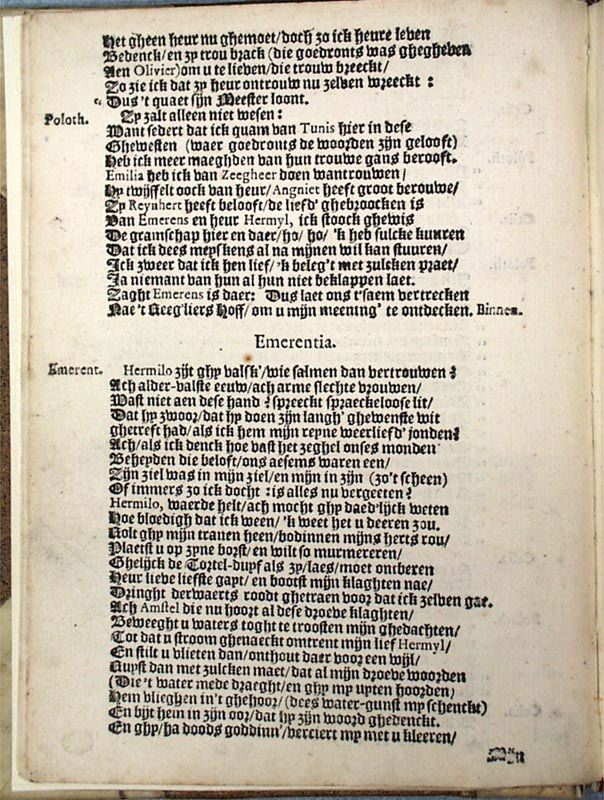 Het gheen heur nu ghemoet/doch zo ick heure leven
Bedenck/en zy trou brack (die goedronts was ghegheven
Aen Olivier)om u te lieven/die trouw breeckt/
Zo zie ick dat zy heur ontrouw nu zelven wreeckt:
Dus 't quaet sijn Meester loont.
Poloth. Ty zalt alleen niet wesen:
Want sedert dat ick quam van Tunis hier in dese
Ghewesten (waer goedronts de woorden zijn gelooft)
Heb ick meer maeghden van hun trouwe gans berooft.
Emilia heb ick van Zeegheer doen wantrouwen/
Hy twijffelt oock van heur/Angniet heeft groot berouwe/
Ty Reynhert heeft belooft/de liefd' ghebroocken is
Van Emerens en heur Hermyl, ick stoock ghewis
De gramschap hier en daer/ho/ ho/ 'k heb sulcke kunren
Dat ick dees meyskens al na mijnen wil kan stuuren/
Ick zweer dat ick hen lief/'k beleg't met zulcken praet/
Ja niemant van hun al hun niet beklappen laet.
Zaght Emerens is daer: Dus laet ons t'saem vertrecken
Nae 't Keeg'liers Hoff/om u mijn meening' te ontdecken. Binnen.
Emerentia.
Emerent. Hermilo zijt ghy valsk'/wie salmen dan vertrouwen?
Ach alder-valste eeuw/ach arme slechte vrouwen/
Wast niet aen dese hand? spreeckt spraeckeloose lit/
Dat hy zwoor/dat hy doen zijn langh' ghewenste wit
ghetreft had/als ick hem mijn reyne weerliefd' jonden?
Ach/als ick denck hoe vast het zeghel onses monden
Beheyden die beloft/ons aesems waren een/
Zijn ziel was in mijn ziel/en mijn in zijn (zo't scheen)
Of immers zo ick docht: is alles nu vergeeten?
Hermilo, waerde helt/ach mocht ghy daed'lijck weten
Hoe bloedigh dat ick ween/ 'k weet het u deeren zou.
Rolt ghy mijn tranen heen/bodinnen mijns herts rou/
Plaetst u op zyne borst/en wilt so murmereren/
Ghelijck de Tortel-duyf als zy/laes/moet ontberen
Heur lieve liefste gapt/ en bootst mijn klaghten nae/
Dringht derwaerts roodt ghetraen voor dat ick zelven gae.
Ach Amstel die nu hoort al dese droeve klaghten/
Beweeght u waters toght te troosten mijn ghedachten/
Tot dat u stroom ghenaeckt omtrent mijn lief Hermyl/
En stilt u vlieten dan/onthout daer voor een wijl/
Ruyst dan met zulcken maet/dat al mijn droeve woorden
(Die 't water mede draeght/en ghy my upten hoorden/
Hem vlieghen in't ghehoor/(dees water-gunst my schenckt)
En bijt hem in zijn oor/dat hy zijn woord ghedenckt.
En ghy/ha doods goddinn'/verciert my met u kleeren/